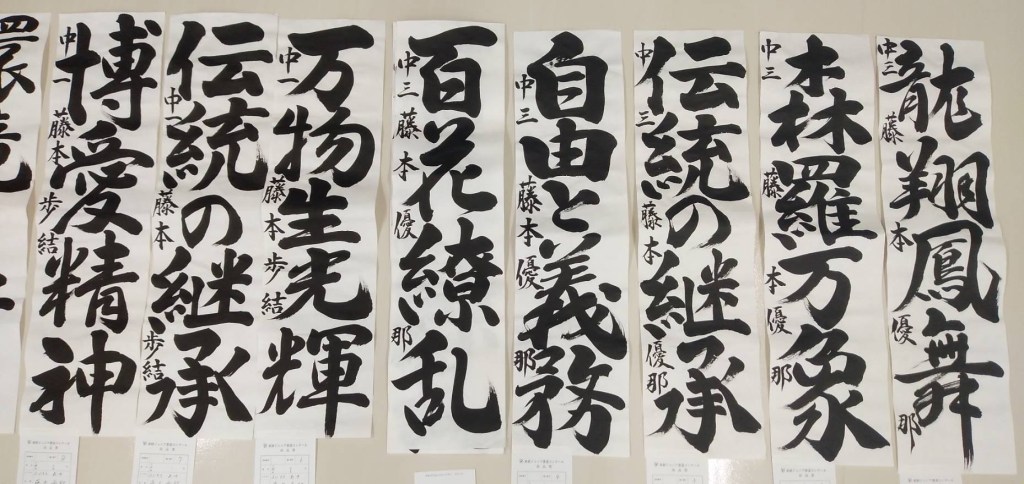 龍翔鳳舞
中三 藤本優那
森羅万象
中三 藤本優那
伝統の継承
中三 藤本優那
自由と義務
中三 藤本優那
百花繚乱
中三 藤本優那
万物生光輝
中一 藤本歩結
伝統の継承
中一 藤本歩結
博愛精神
中一 藤本歩結